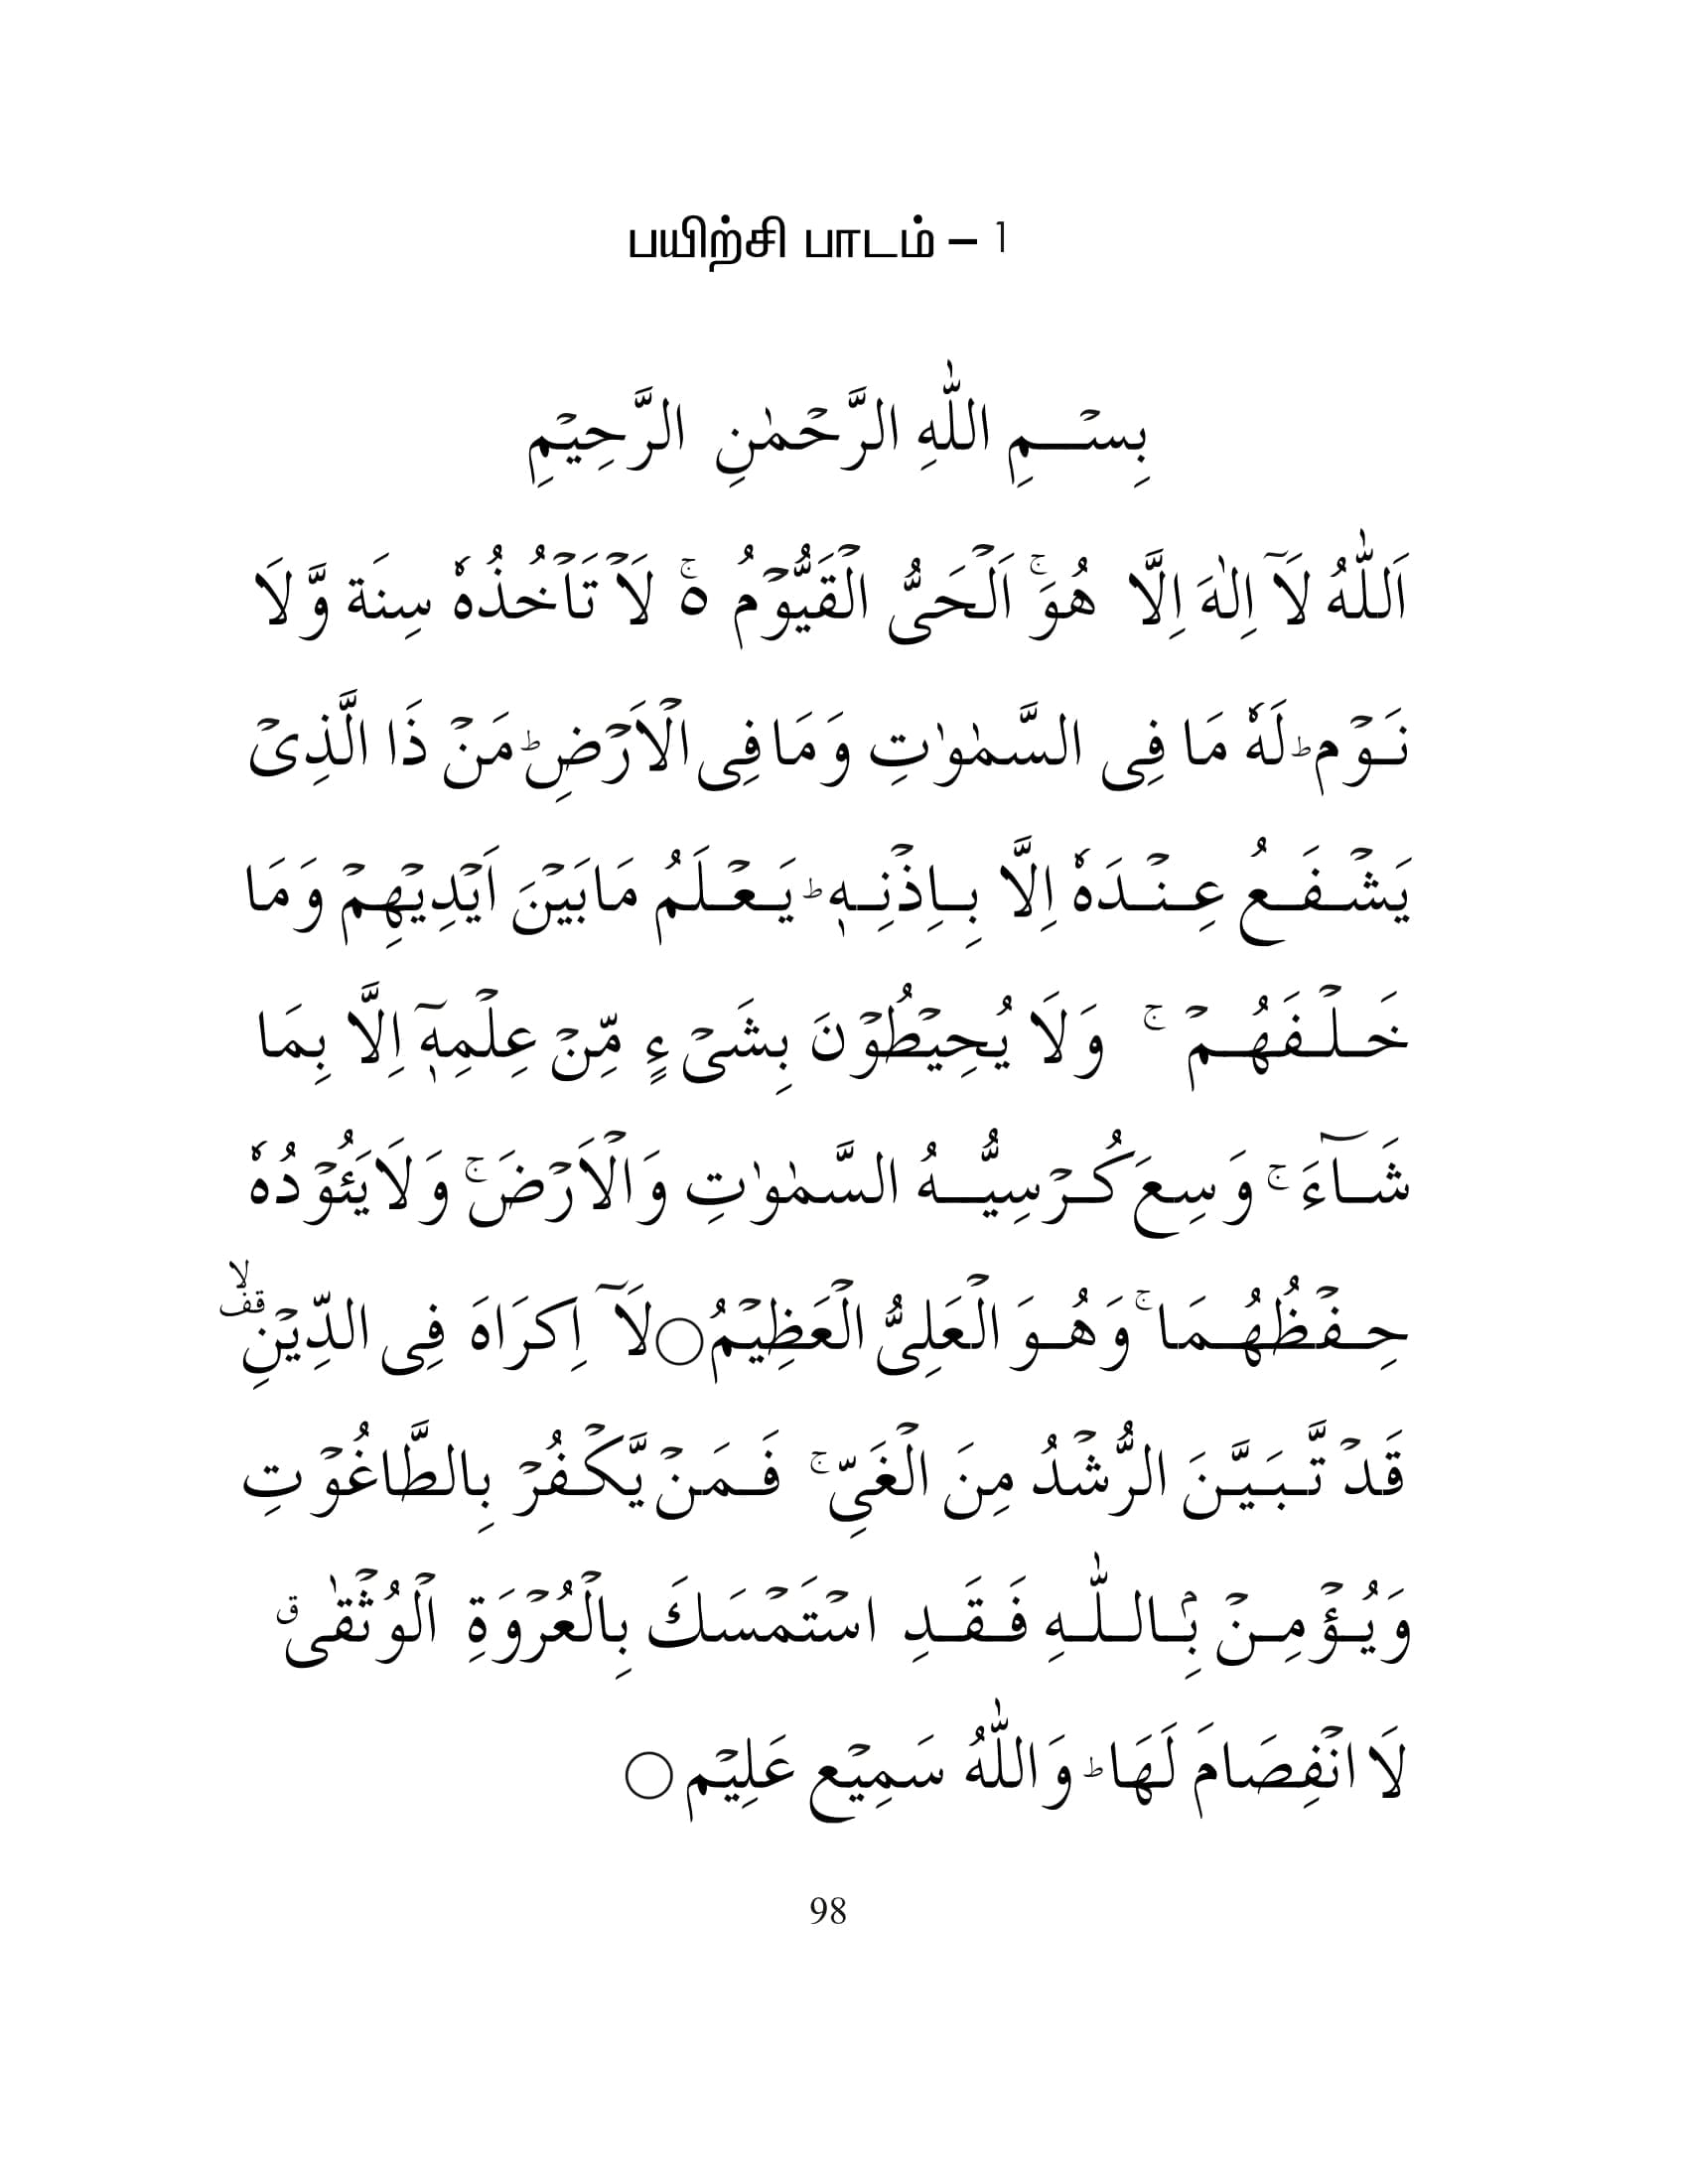 பயிற்சி பாடம் – 1
بِسۡـــمِ اللّٰهِ الرَّحۡمٰنِ الرَّحِيۡمِ
اَللّٰهُ لَآ اِلٰهَ اِلَّا هُوَ ۚ اَلۡحَىُّ الۡقَيُّوۡمُ ە ۚ لَاۡ تَاۡخُذُهٗ سِنَة وَّلَا
نَـوۡم ؕ لَهٗ مَا فِى السَّمٰوٰتِ وَمَا فِى الۡاَرۡضِ ؕ مَنۡ ذَا الَّذِىۡ
يَشۡـفَـعُ عِـنۡـدَهٗ اِلَّا بِـاِذۡنِـهٖ ؕ يَـعۡـلَمُ مَابَيۡنَ اَيۡدِيۡهِمۡ وَمَا
خَـلۡـفَهُـمۡ ۚ وَلَا يُحِيۡطُوۡنَ بِشَىۡءٍ مِّنۡ عِلۡمِهٖۤ اِلَّا بِمَا
شَـآءَ ۚ وَسِعَ كُـرۡسِيُّـهُ السَّمٰوٰتِ وَالۡاَرۡضَ ۚ وَلَا يَئُوۡدُهٗ
حِـفۡظُهُـمَا ۚ وَهُـوَ الۡعَلِىُّ الۡعَظِيۡمُ ○ لَآ اِكرَاهَ فِى الدِّيۡنِ ۙقف
قَدۡ تَّـبَـيَّـنَ الرُّشۡدُ مِنَ الۡغَىِّ ۚ فَـمَـنۡ يَّكۡـفُرۡ بِالطَّاغُوۡتِ
وَيُـؤۡمِـنۡۢ بِـالـلّٰـهِ فَـقَـدِ اسۡتَمۡسَكَ بِالۡعُرۡوَةِ الۡوُثۡقٰى ق
لَا انۡفِصَامَ لَهَا ؕ وَاللّٰهُ سَمِيۡع عَلِيۡم ○
98